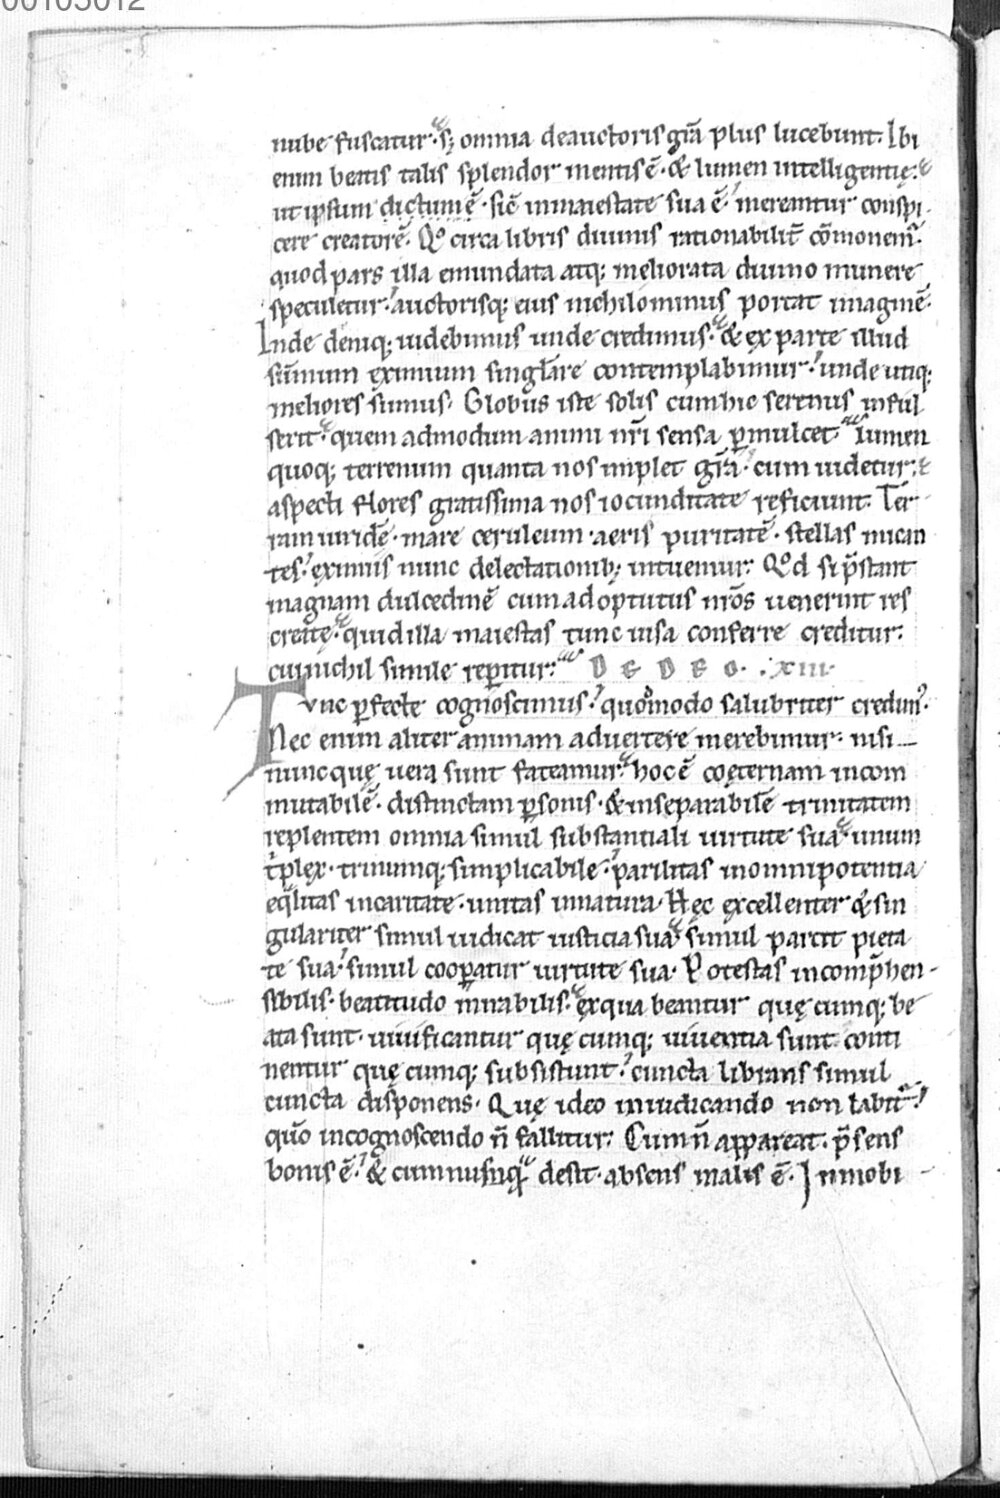 00103012
nube fuscatur· sꝫ omnia deauctoris grā plus lucebunt. Ibi
enim beatis talis splendor mentis ē· & lumen intelligentię· &
ut ipsum dictum ē· sic̄ inmaiestate sua ē mereantur conspi
cere creatorē. Qͦ circa libris diuinis rationabilit̄ cōmonemͬ·
quod pars illa emundata atq; meliorata diuino munere
speculetur· auctorisq; eius nichilominus portat imaginē·
Inde deniq; uidebimus unde credimus· & ex parte illud
sūmum eximium singlare contemplabimur· unde utiq;
meliores sumus· Globus iste solis cum hic serenus inful
serit· quem admodum animi nr̄i sensa ꝑmulcet· Lumen
quoq; terrenum quanta nos implet grā· cum uidetur· &
aspecti flores gratissima nos iocunditate reficiunt. Ter
ram uiridē· mare ceruleum· aeris puritatē· stellas mican
tes· eximiis nunc delectationibꝫ intuemur· Qd si p̄stant
magnam dulcedinē cum ad optutus nr̄os uenerint res
creatę· quid illa maiestas tunc uisa conferre creditur·
cui nichil simile reꝑitur· D E D E O· XIII·
Tunc ꝑfecte cognoscimus· quomodo salubriter credimꝰ·
Nec enim aliter animam aduertere merebimur· nisi
nunc quę uera sunt fateamur· hoc ē coęternam incom
mutabilē· distinctam ꝑsonis· & inseparabilē trinitatem
replentem omnia simul substantiali uirtute sua· unum
triplex· trinumq; simplicabile· parilitas in omnipotentia
eq̄litas incaritate· unitas innatura· Hęc excellenter & sin
gulariter simul iudicat iusticia sua· simul parcit pieta
te sua· simul cooꝑatur uirtute sua· Potestas incomp̄hen-
sibilis· beatitudo mirabilis· ex qua beantur quę cumq; be
ata sunt· uiuificantur quę cumq; uiuentia sunt· conti
nentur quę cumq; subsistunt· cuncta librans simul
cuncta disponens· Quę ideo iniudicando non labitͬ·
quō incognoscendo n̄ fallitur· Cum n̄ appareat· p̄sens
bonis ē· & cum nusq̄ desit· absens malis ē· Inmobi